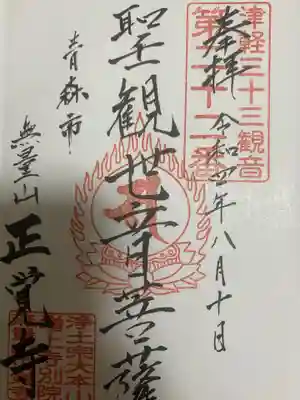 津軽三十三観音
第二十二番
奉拝 令和四年八月十日
聖観世音菩薩
青森市
無量山 正覚寺
浄土宗大本山
増上寺別院